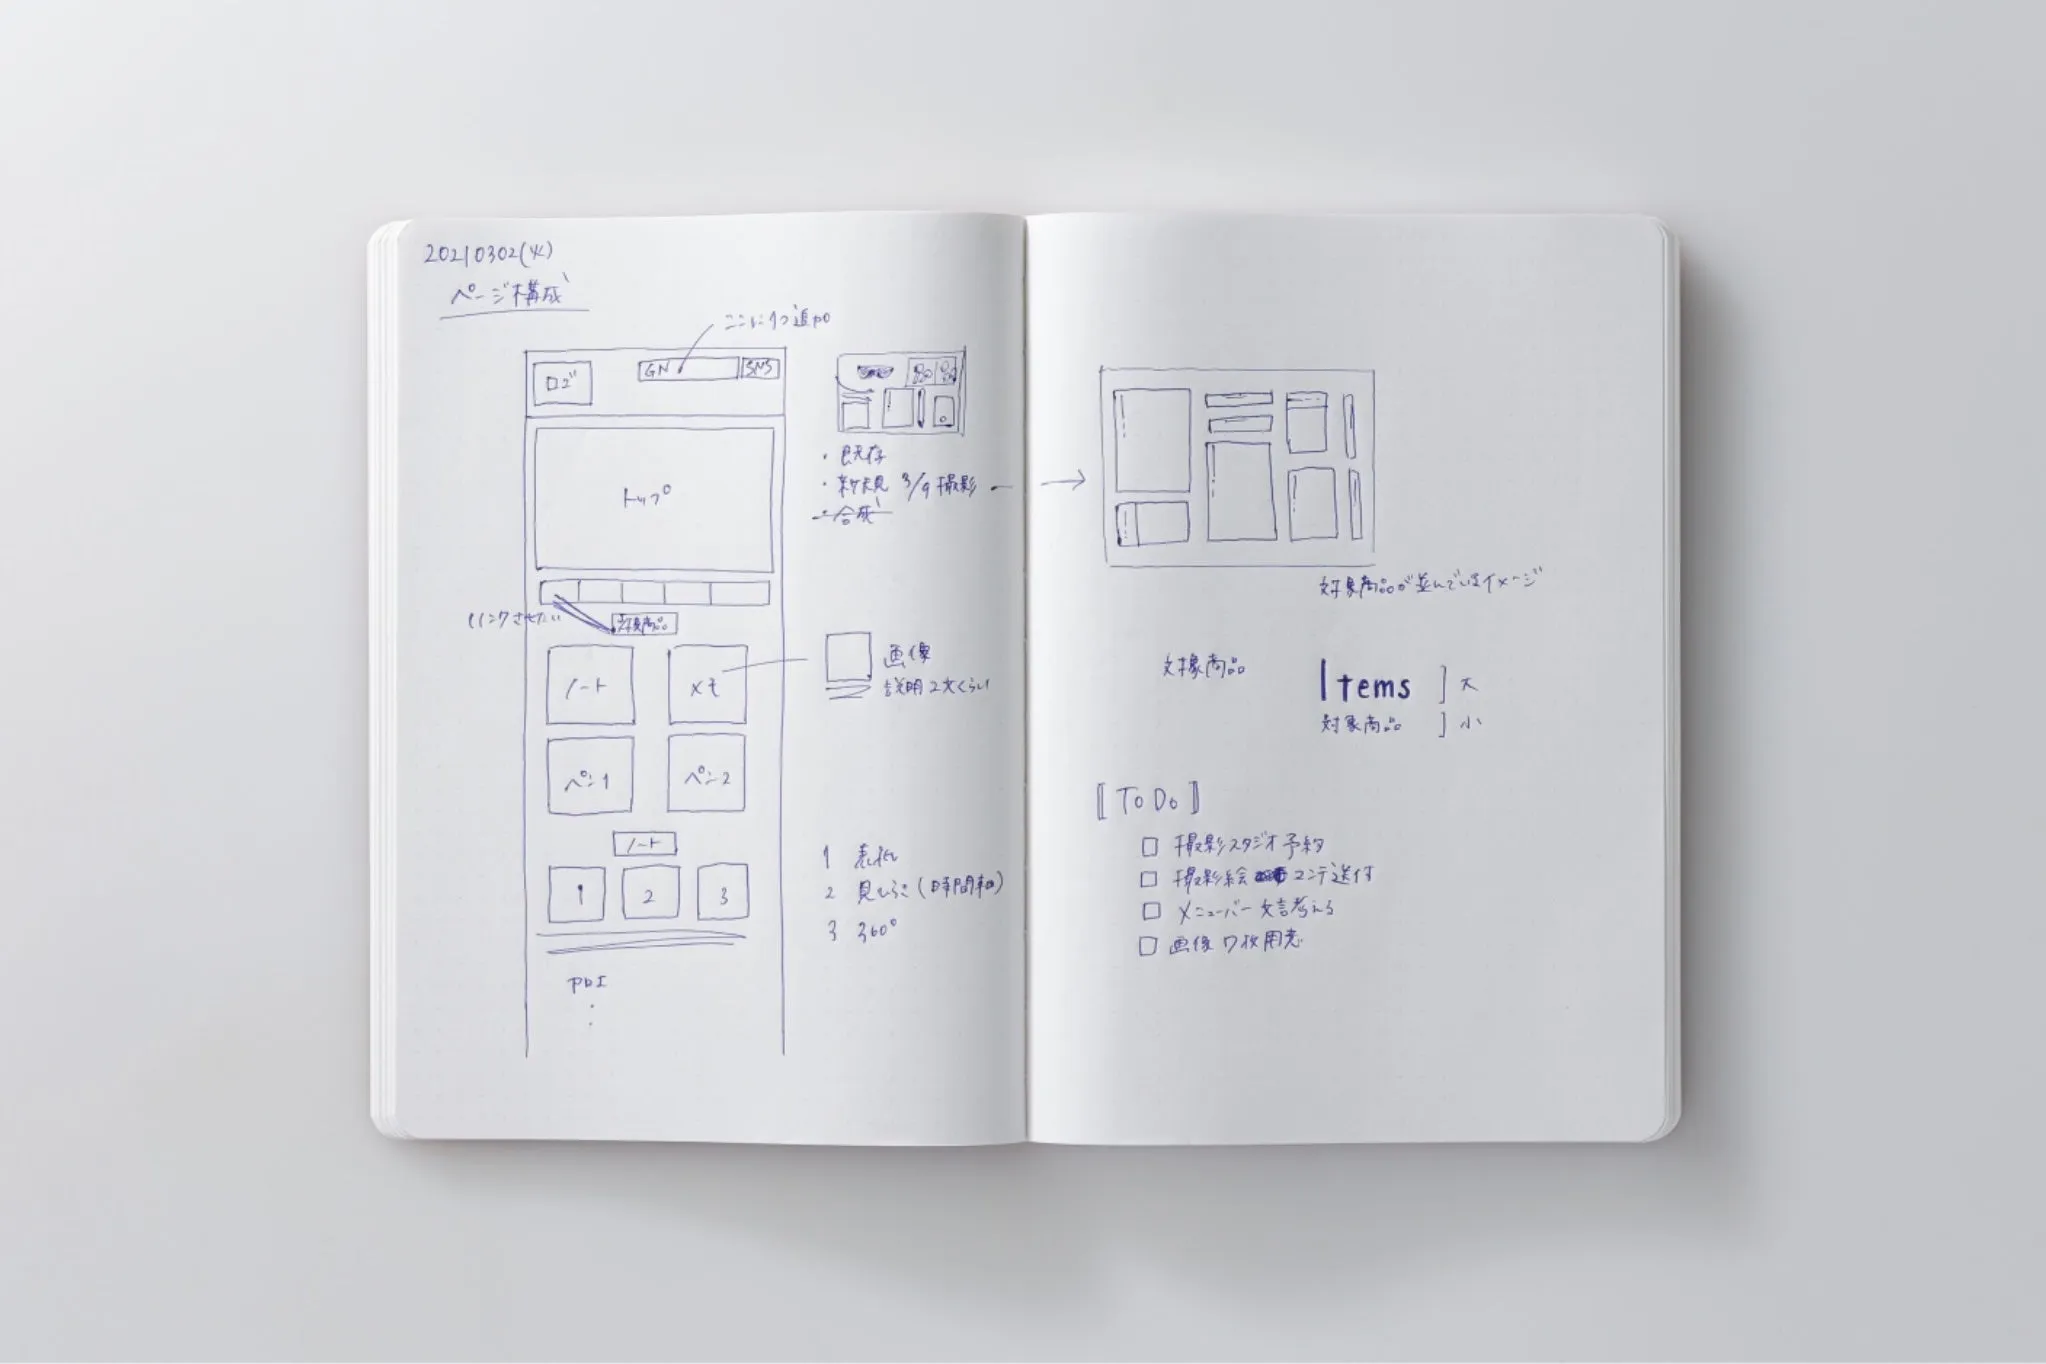 20210302(火)
ページ構成
ここに1つ追加
ロゴ
GN
SNS
トップ
・既存
・新規 3/9 撮影
・合成
リンクさせたい
対象商品
ノート
メモ
画像
説明2文くらい
ペン1
ペン2
ノート
1
2
3
1 表紙
2 見ひらき(時間軸)
3 360°
対象商品が並んでいるイメージ
対象商品
Items ] 大
対象商品 ] 小
[ ToDo ]
□ 撮影スタジオ予約
□ 撮影絵コンテ送付
□ メニューバー文言考える
□ 画像7枚用意